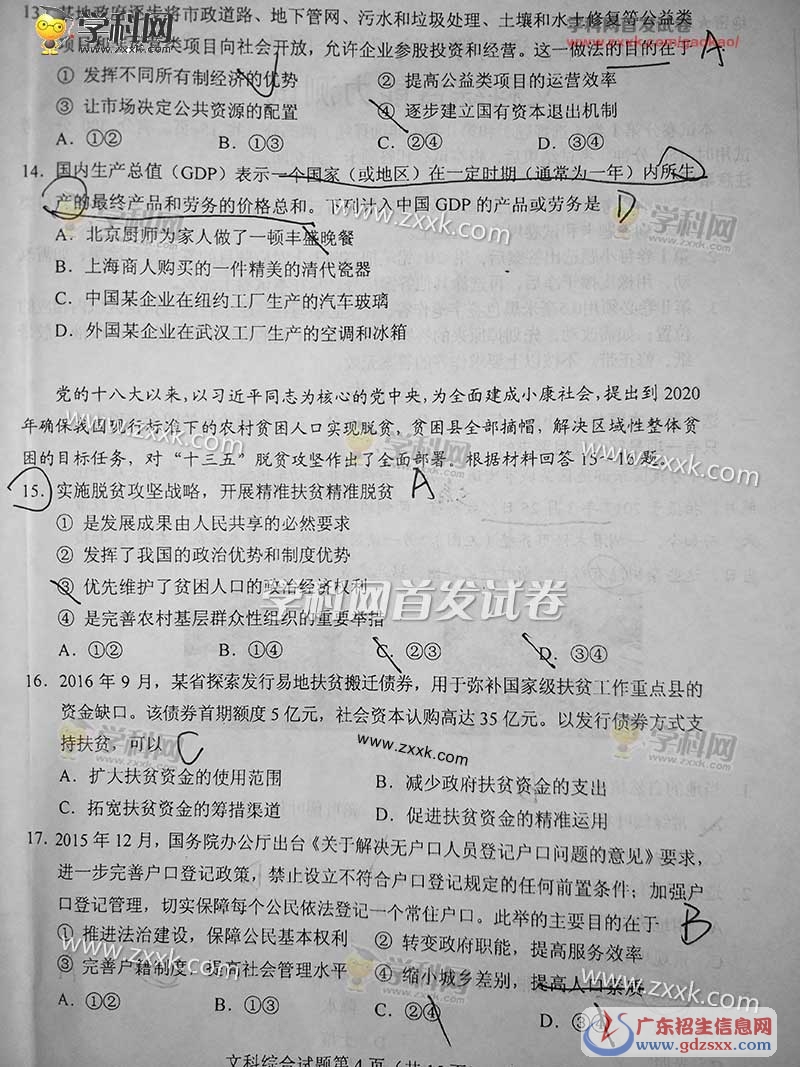 13. 某地政府逐步将市政道路、地下管网、污水和垃圾处理、土壤和水土修复等公益类
项目 类项目向社会开放，允许企业参股投资和经营。这一做法的目的在于 A
① 发挥不同所有制经济的优势 ② 提高公益类项目的运营效率
③ 让市场决定公共资源的配置 ④ 逐步建立国有资本退出机制
A．①② B．①③ C．②④ D．③④
14．国内生产总值（GDP）表示一个国家（或地区）在一定时期（通常为一年）内所生
产的最终产品和劳务的价格总和。下列计入中国 GDP 的产品或劳务是 D
A．北京厨师为家人做了一顿丰盛晚餐
B．上海商人购买的一件精美的清代瓷器
C．中国某企业在纽约工厂生产的汽车玻璃
D．外国某企业在武汉工厂生产的空调和冰箱
党的十八大以来，以习近平同志为核心的党中央，为全面建成小康社会，提出到 2020
年确保我国现行标准下的农村贫困人口实现脱贫，贫困县全部摘帽，解决区域性整体贫
困的目标任务，对“十三五”脱贫攻坚作出了全面部署。根据材料回答 15～16 题。
15．实施脱贫攻坚战略，开展精准扶贫精准脱贫 A
① 是发展成果由人民共享的必然要求
② 发挥了我国的政治优势和制度优势
③ 优先维护了贫困人口的政治经济权利
④ 是完善农村基层群众性组织的重要举措
A．①② B．①③ C．②③ D．③④
16．2016 年 9 月，某省探索发行易地扶贫搬迁债券，用于弥补国家级扶贫工作重点县的
资金缺口。该债券首期额度 5 亿元，社会资本认购高达 35 亿元。以发行债券方式支
持扶贫，可以 C
A．扩大扶贫资金的使用范围 B．减少政府扶贫资金的支出
C．拓宽扶贫资金的筹措渠道 D．促进扶贫资金的精准运用
17．2015 年 12 月，国务院办公厅出台《关于解决无户口人员登记户口问题的意见》要求，
进一步完善户口登记政策，禁止设立不符合户口登记规定的任何前置条件；加强户
口登记管理，切实保障每个公民依法登记一个常住户口。此举的主要目的在于 B
① 推进法治建设，保障公民基本权利 ② 转变政府职能，提高服务效率
③ 完善户籍制度，提高社会管理水平 ④ 缩小城乡差别，提高人口素质
A．①② B．①③ C．②④ D．③④
文科综合试题第 4 页（共
学科网首发试卷
www.zxxk.com/gaokao/
学科网
www.zxxk.com
广东招生信息网
www.gdzsxx.com